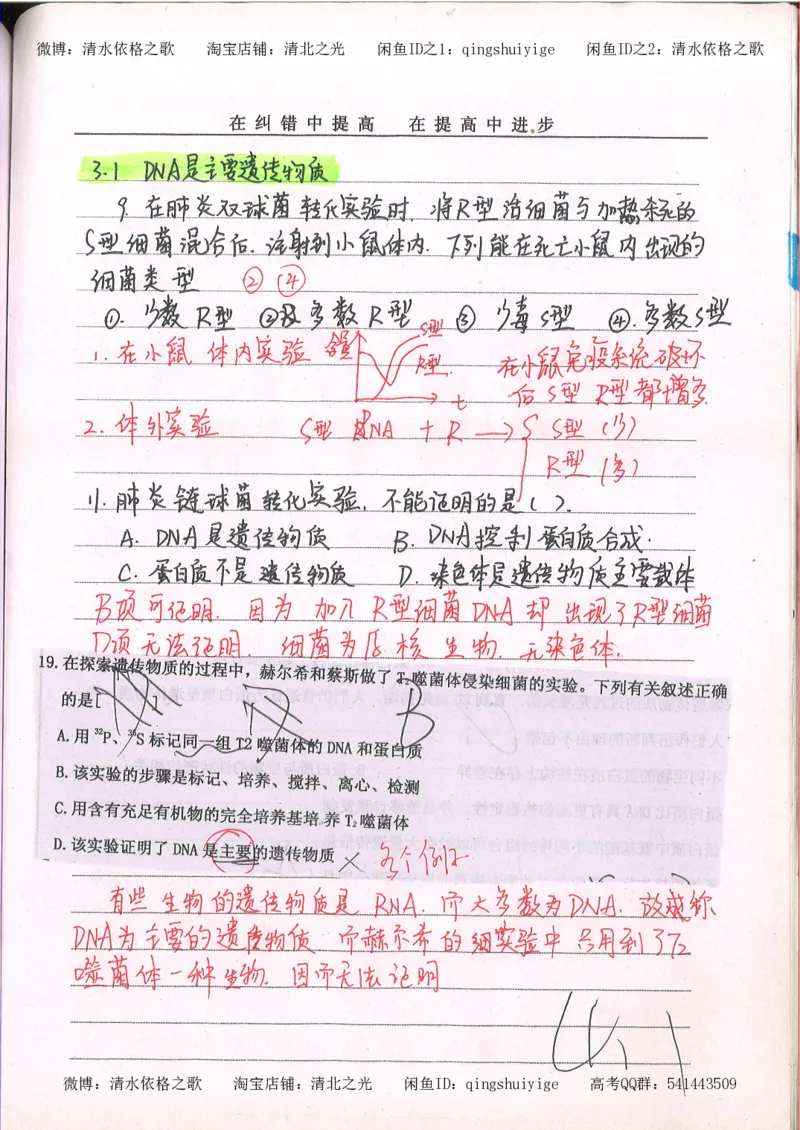 微博：清水依格之歌 淘宝店铺：清北之光 闲鱼ID之1：qingshuiyige 闲鱼ID之2：清水依格之歌
在纠错中提高 在提高中进步
3.1 DNA是主要遗传物质
9. 在肺炎双球菌转化实验时，将R型活细菌与加热杀死的
S型细菌混合后，注射到小鼠体内，下列能在死亡小鼠内出现的
细菌类型 ② ④
①. 少数R型 ② 多数R型 ③ 少毒S型 ④. 多数S型
1. 在小鼠体内实验 含量 S型 R型 t 在小鼠免疫系统破坏
后S型R型都增多.
2. 体外实验 S型 DNA + R → S S型（少）
R型（多）
11. 肺炎链球菌转化实验，不能证明的是（ ）.
A. DNA是遗传物质 B. DNA控制蛋白质合成.
C. 蛋白质不是遗传物质 D. 染色体是遗传物质主要载体
B项可证明，因为加入R型细菌DNA却出现了R型细菌
D项无法证明，细菌为原核生物，无染色体.
19.在探索遗传物质的过程中，赫尔希和蔡斯做了T₂噬菌体侵染细菌的实验。下列有关叙述正确
的是[ B
A.用³²P、³⁵S标记同一组T2噬菌体的DNA和蛋白质
B.该实验的步骤是标记、培养、搅拌、离心、检测
C.用含有充足有机物的完全培养基培养T₂噬菌体
D.该实验证明了DNA是主要的遗传物质 ×
有些生物的遗传物质是RNA，而大多数为DNA，故 称
DNA为主要的遗传物质，而赫尔希的细实验中只用到了T2
噬菌体一种生物，因而无法证明
微博：清水依格之歌 淘宝店铺：清北之光 闲鱼ID：qingshuiyige 高考QQ群：541443509